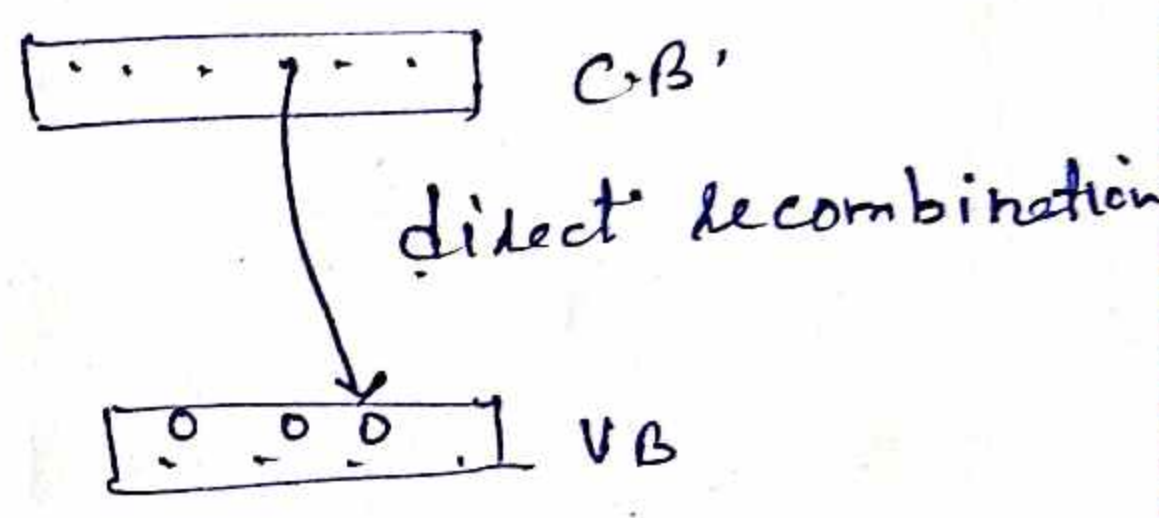 C.B'
direct recombination
VB